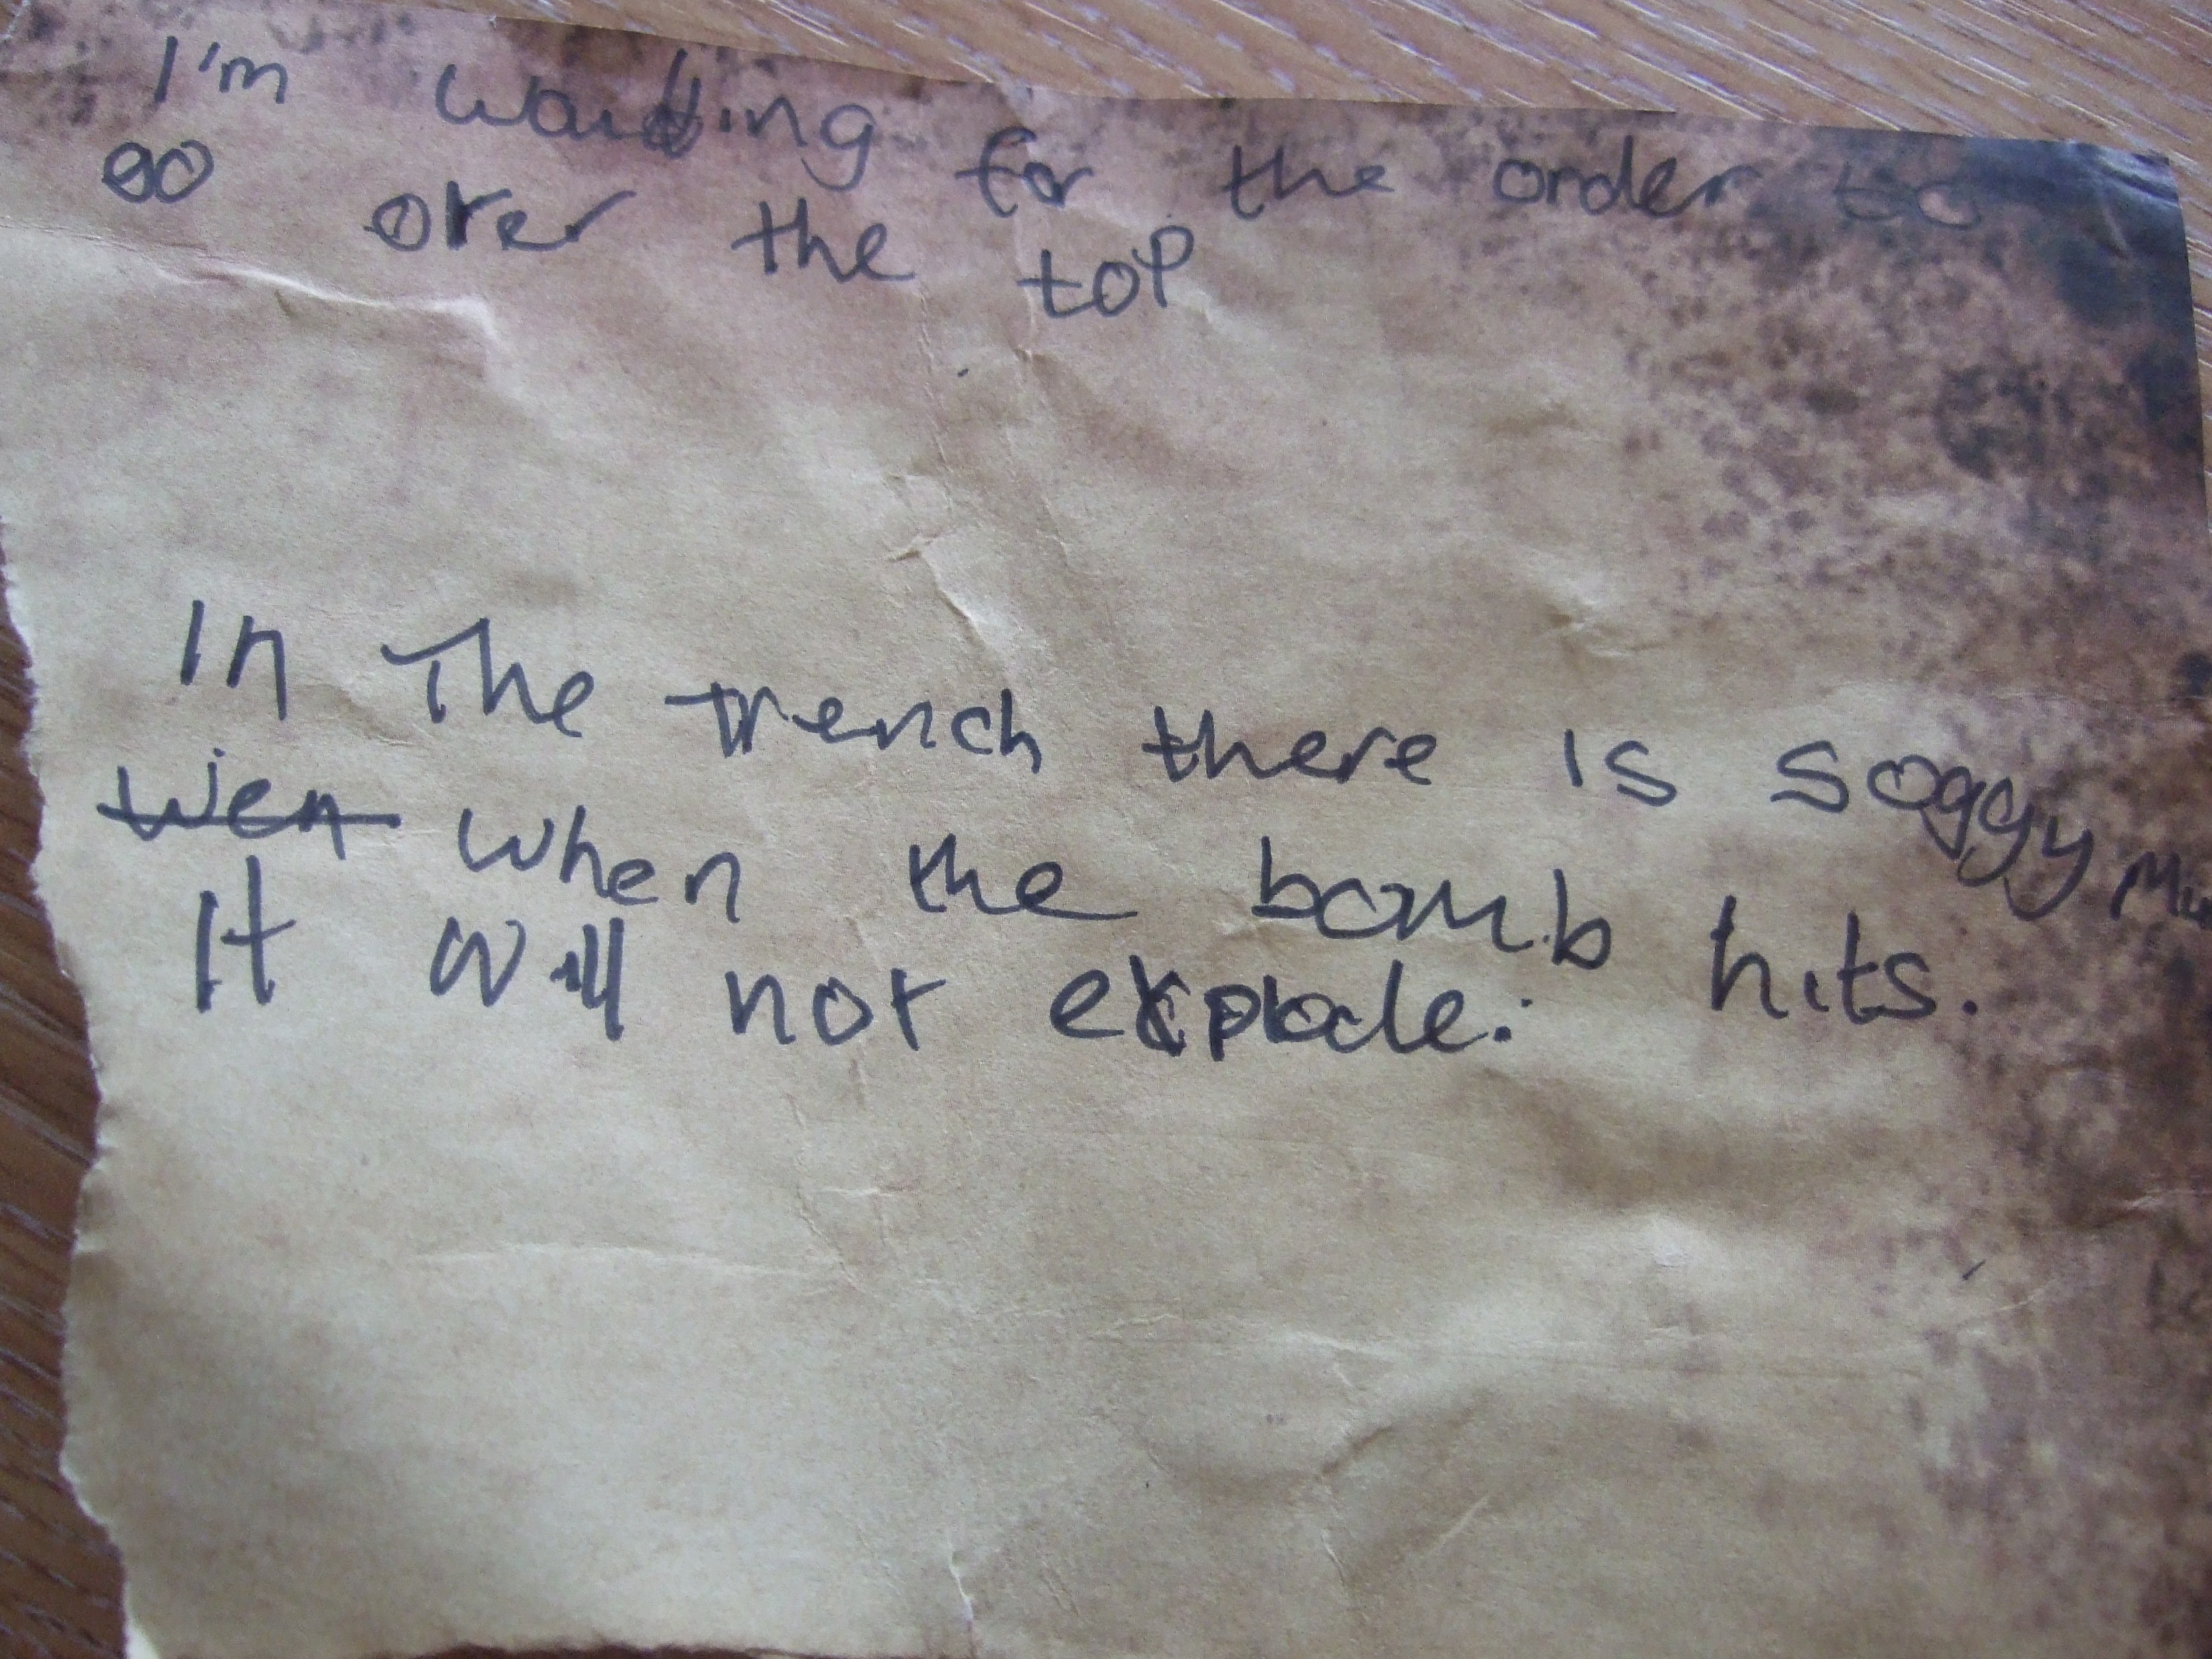 I'm waiting for the order to
go over the top
In The trench there is soggy
wen when the bomb hits.
It will not explode.